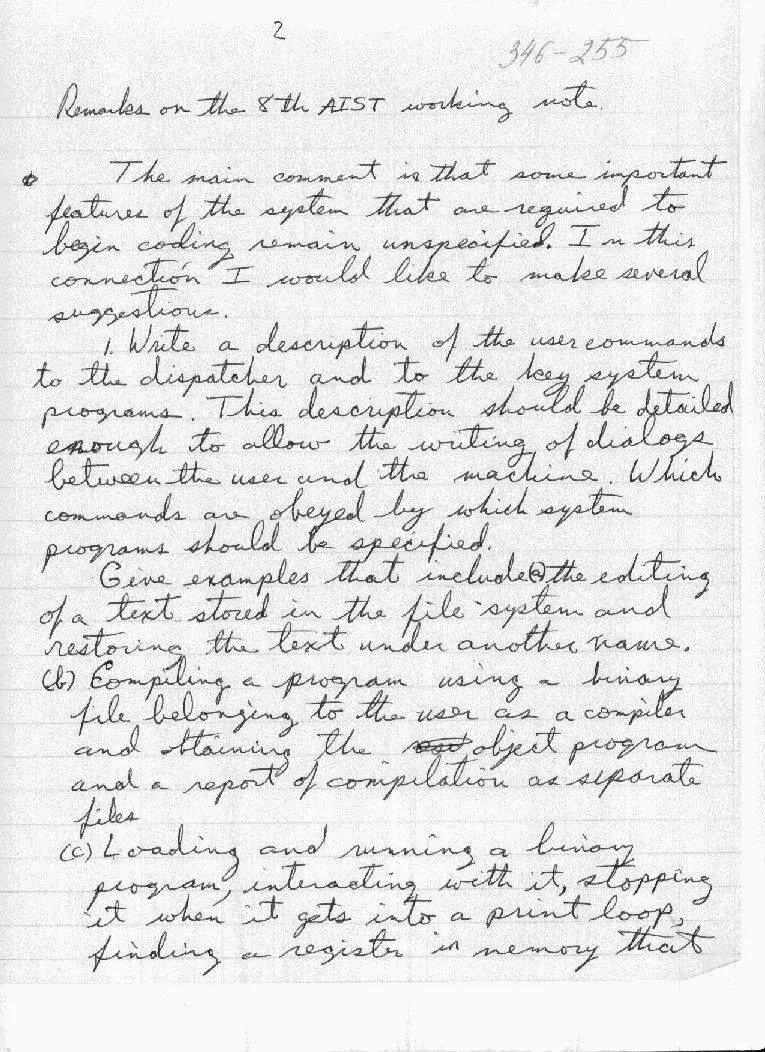 2
346-255
Remarks on the 8th AIST working note.
The main comment is that some important
features of the system that are required to
begin coding remain unspecified. In this
connection I would like to make several
suggestions.
1. Write a description of the user commands
to the dispatcher and to the key system
programs. This description should be detailed
enough to allow the writing of dialogs
between the user and the machine. Which
commands are obeyed by which system
programs should be specified.
Give examples that include (a) the editing
of a text stored in the file system and
restoring the text under another name.
(b) Compiling a program using a binary
file belonging to the user as a compiler
and obtaining the object program
and a report of compilation as separate
files
(c) Loading and running a binary
program, interacting with it, stopping
it when it gets into a print loop,
finding a register in memory that